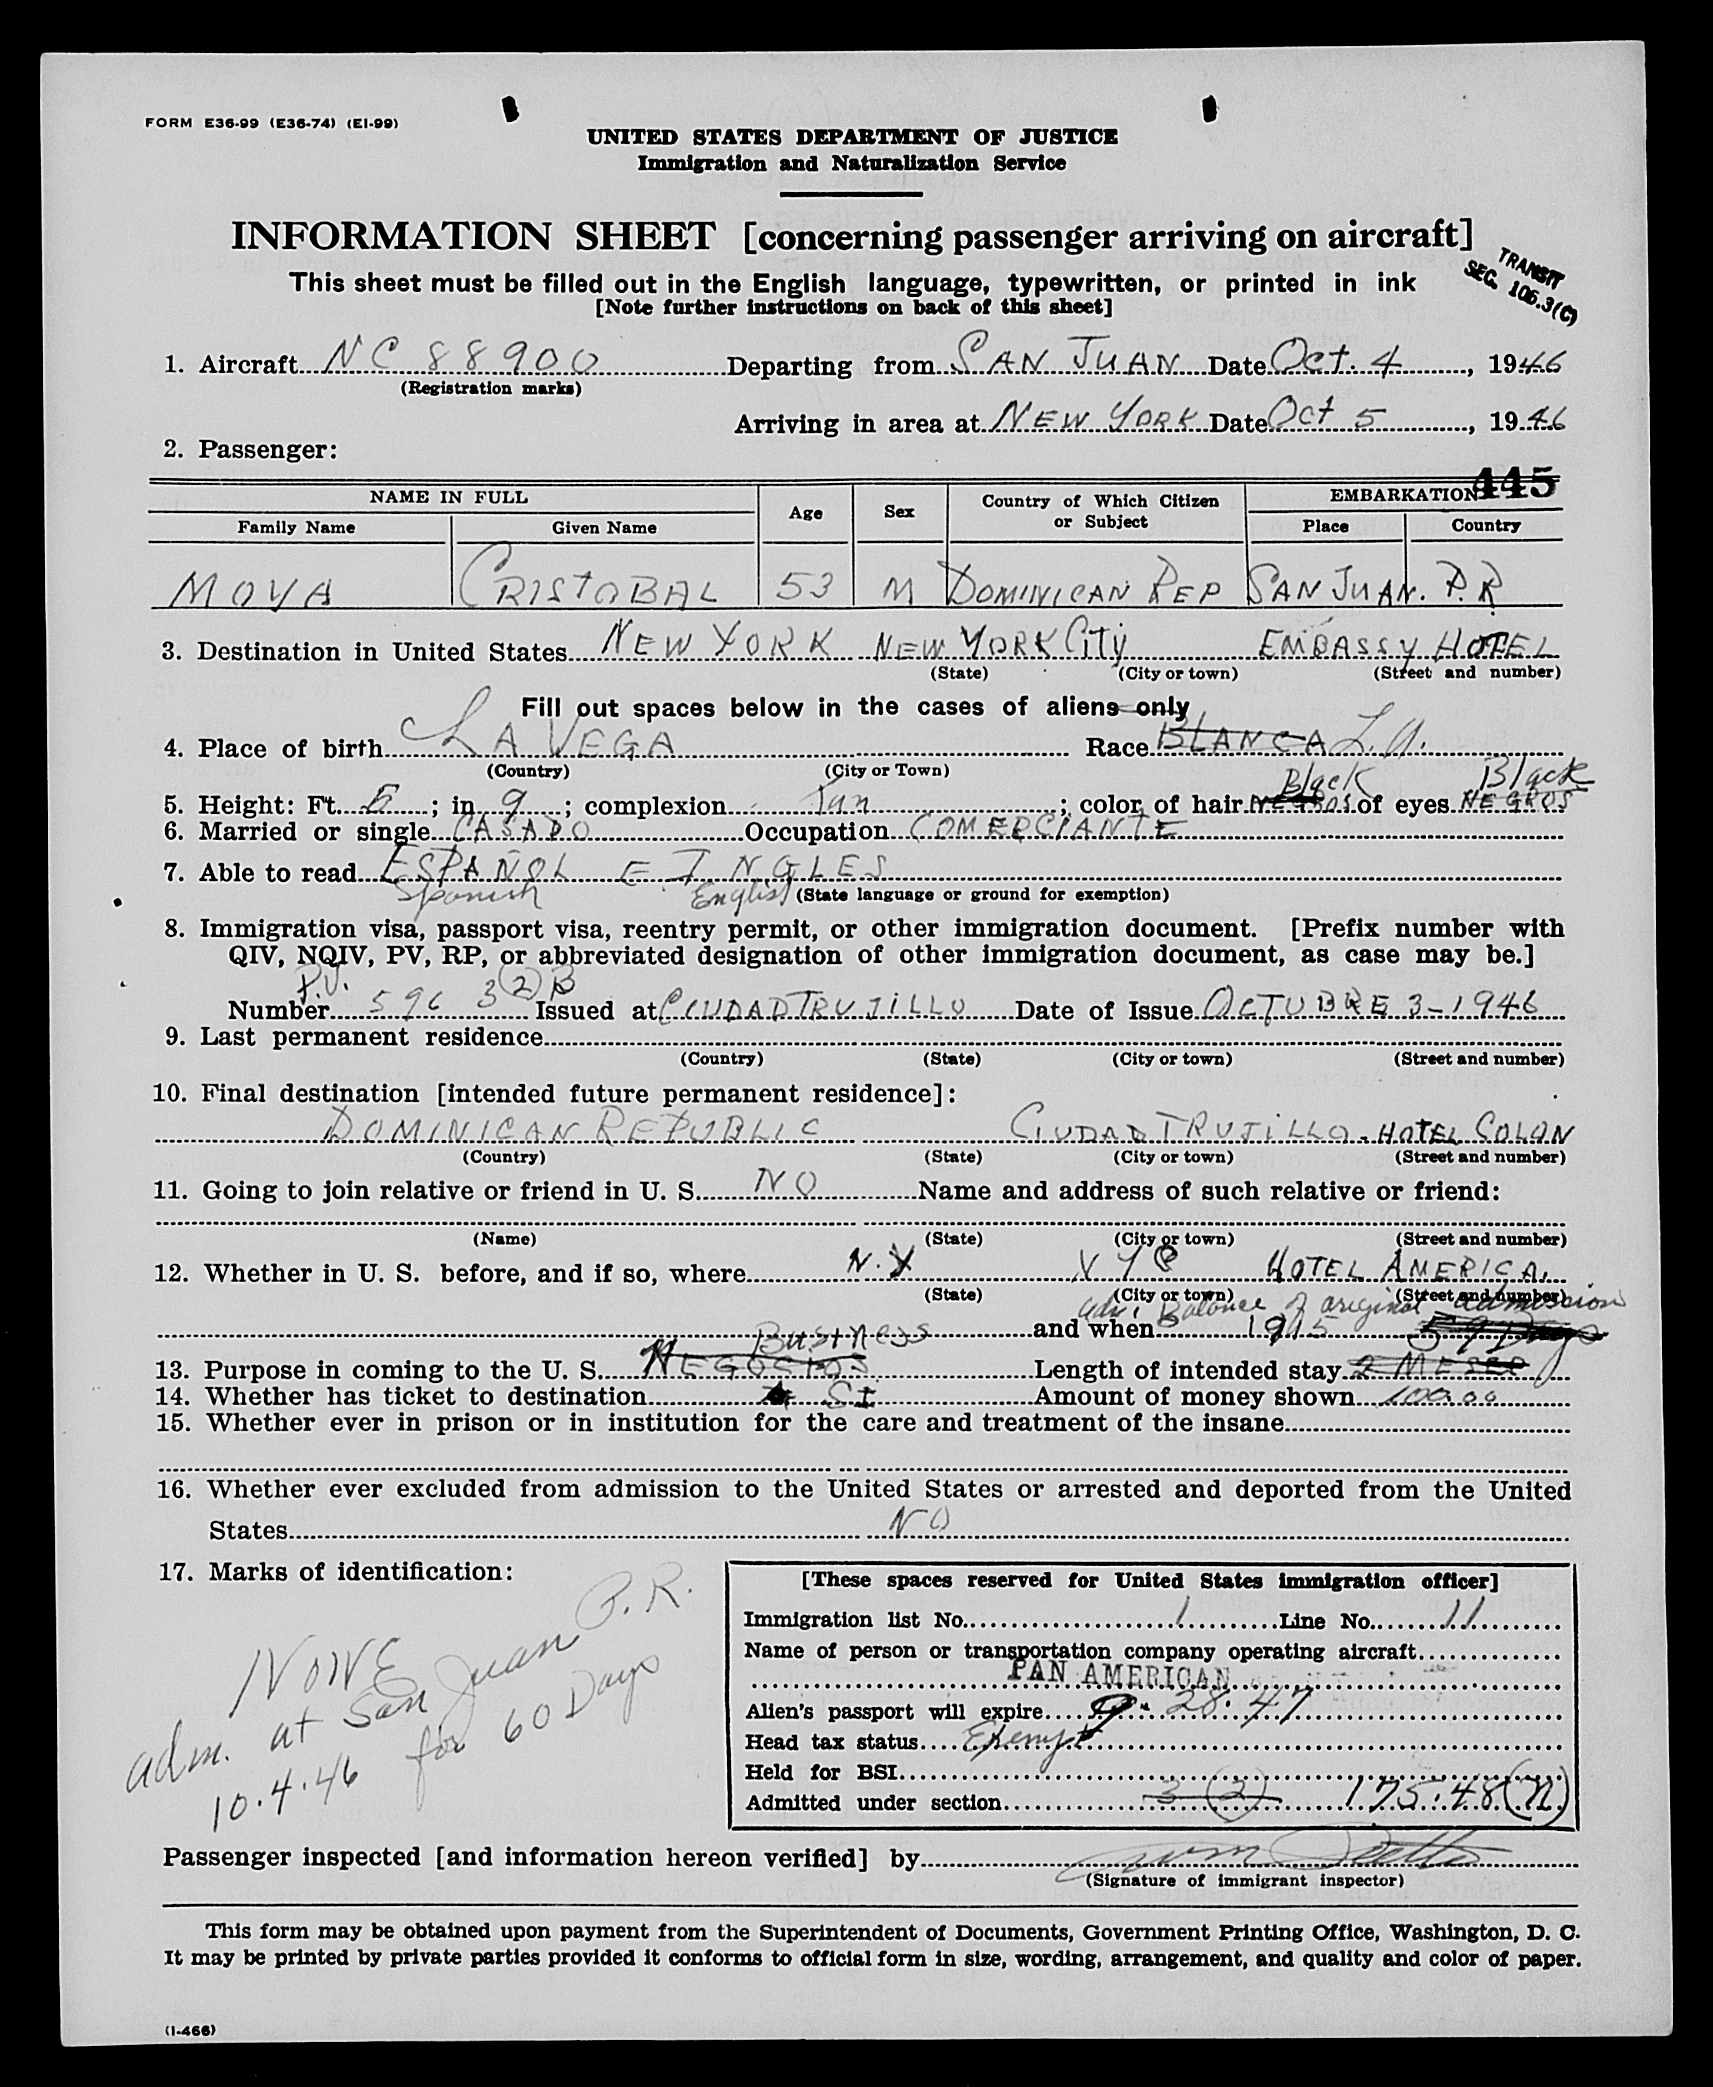 FORM E36-99 (E36-74) (EI-99)
UNITED STATES DEPARTMENT OF JUSTICE
Immigration and Naturalization Service
INFORMATION SHEET [concerning passenger arriving on aircraft]
TRANSIT
SEC. 106.3(C)
This sheet must be filled out in the English language, typewritten, or printed in ink
[Note further instructions on back of this sheet]
1. Aircraft NC 88900 Departing from SAN JUAN Date Oct. 4, 1946
(Registration marks)
Arriving in area at NEW YORK Date Oct 5, 1946
2. Passenger:
445
NAME IN FULL Age Sex Country of Which Citizen or Subject EMBARKATION
Family Name Given Name Place Country
MOYA CRISTOBAL 53 M DOMINICAN REP SAN JUAN. P.R.
3. Destination in United States NEW YORK NEW YORK City EMBASSY HOTEL
(State) (City or town) (Street and number)
Fill out spaces below in the cases of aliens only
4. Place of birth LA VEGA Race BLANCA L.A.
(Country) (City or Town)
Black Black
5. Height: Ft. 5; in. 9; complexion Tan; color of hair NEGROS of eyes NEGROS
6. Married or single CASADO Occupation COMERCIANTE
7. Able to read ESPAÑOL E INGLES
Spanish English (State language or ground for exemption)
8. Immigration visa, passport visa, reentry permit, or other immigration document. [Prefix number with
QIV, NQIV, PV, RP, or abbreviated designation of other immigration document, as case may be.]
P.V.
Number 596 3(2)B Issued at CIUDAD TRUJILLO Date of Issue OCTUBRE 3-1946
9. Last permanent residence
(Country) (State) (City or town) (Street and number)
10. Final destination [intended future permanent residence]:
DOMINICAN REPUBLIC CIUDAD TRUJILLO. HOTEL COLON
(Country) (State) (City or town) (Street and number)
11. Going to join relative or friend in U. S. NO Name and address of such relative or friend:
(Name) (State) (City or town) (Street and number)
12. Whether in U. S. before, and if so, where N.Y HOTEL AMERICA.
(State) (City or town) (Street and number)
adm. Balance of original admission
and when 1915 59 Days
Business
13. Purpose in coming to the U. S. NEGOCIOS Length of intended stay 2 MESES
14. Whether has ticket to destination SI Amount of money shown 100.00
15. Whether ever in prison or in institution for the care and treatment of the insane
16. Whether ever excluded from admission to the United States or arrested and deported from the United
States NO
17. Marks of identification:
NONE
adm. at San Juan P.R.
10.4.46 for 60 Days
[These spaces reserved for United States immigration officer]
Immigration list No. 1 Line No. 11
Name of person or transportation company operating aircraft
PAN AMERICAN
Alien's passport will expire 9-28-47
Head tax status Exempt
Held for BSI
Admitted under section 3 (2) 175.48(N)
Passenger inspected [and information hereon verified] by
(Signature of immigrant inspector)
This form may be obtained upon payment from the Superintendent of Documents, Government Printing Office, Washington, D. C.
It may be printed by private parties provided it conforms to official form in size, wording, arrangement, and quality and color of paper.
(I-466)